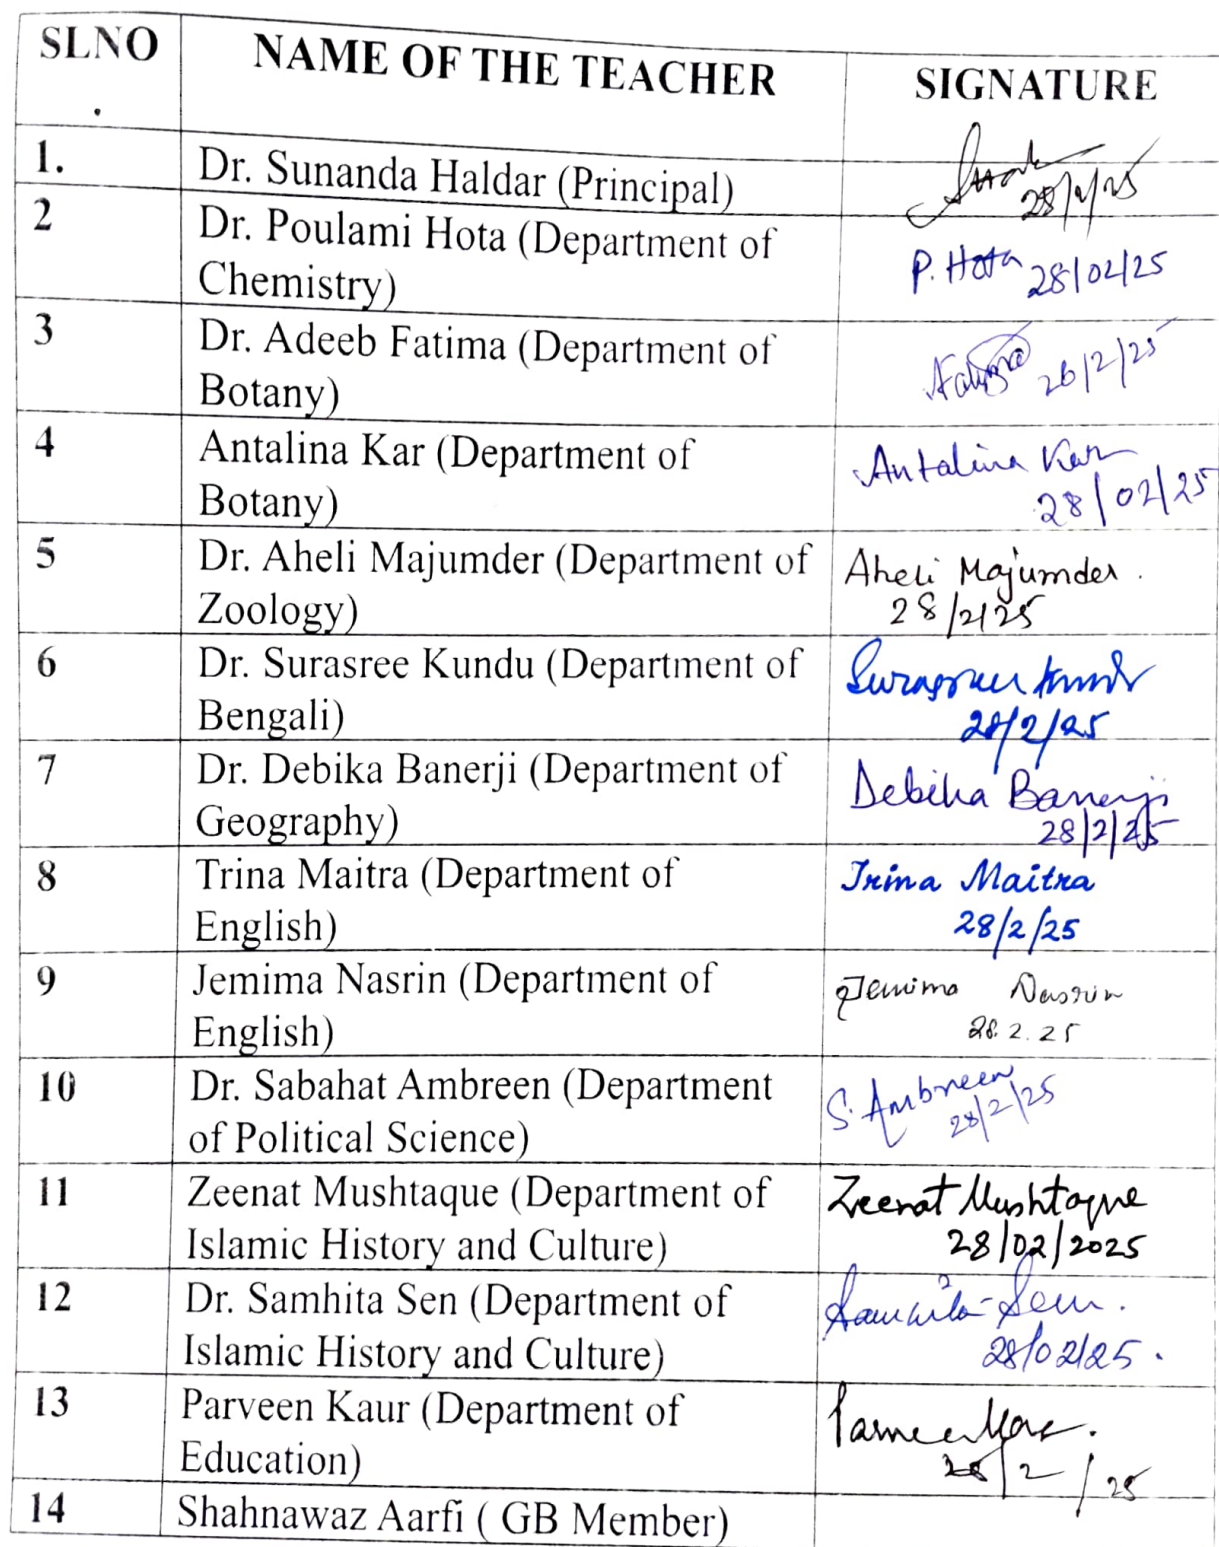 SLNO
.
NAME OF THE TEACHER
SIGNATURE
1.
Dr. Sunanda Haldar (Principal)
2
Dr. Poulami Hota (Department of
Chemistry)
P. Hota 28/02/25
3
Dr. Adeeb Fatima (Department of
Botany)
/2/25
4
Antalina Kar (Department of
Botany)
Antalina Kar
28/02/25
5
Dr. Aheli Majumder (Department of
Zoology)
Aheli Majumder.
28/2/25
6
Dr. Surasree Kundu (Department of
Bengali)
Surasree Kundu
28/2/25
7
Dr. Debika Banerji (Department of
Geography)
Debika Banerji
28/2/25
8
Trina Maitra (Department of
English)
Trina Maitra
28/2/25
9
Jemima Nasrin (Department of
English)
Jemima Nasrin
28.2.25
10
Dr. Sabahat Ambreen (Department
of Political Science)
S. Ambreen
28/2/25
11
Zeenat Mushtaque (Department of
Islamic History and Culture)
Zeenat Mushtaque
28/02/2025
12
Dr. Samhita Sen (Department of
Islamic History and Culture)
Samhita Sen.
28/02/25.
13
Parveen Kaur (Department of
Education)
28/2/25
14
Shahnawaz Aarfi ( GB Member)